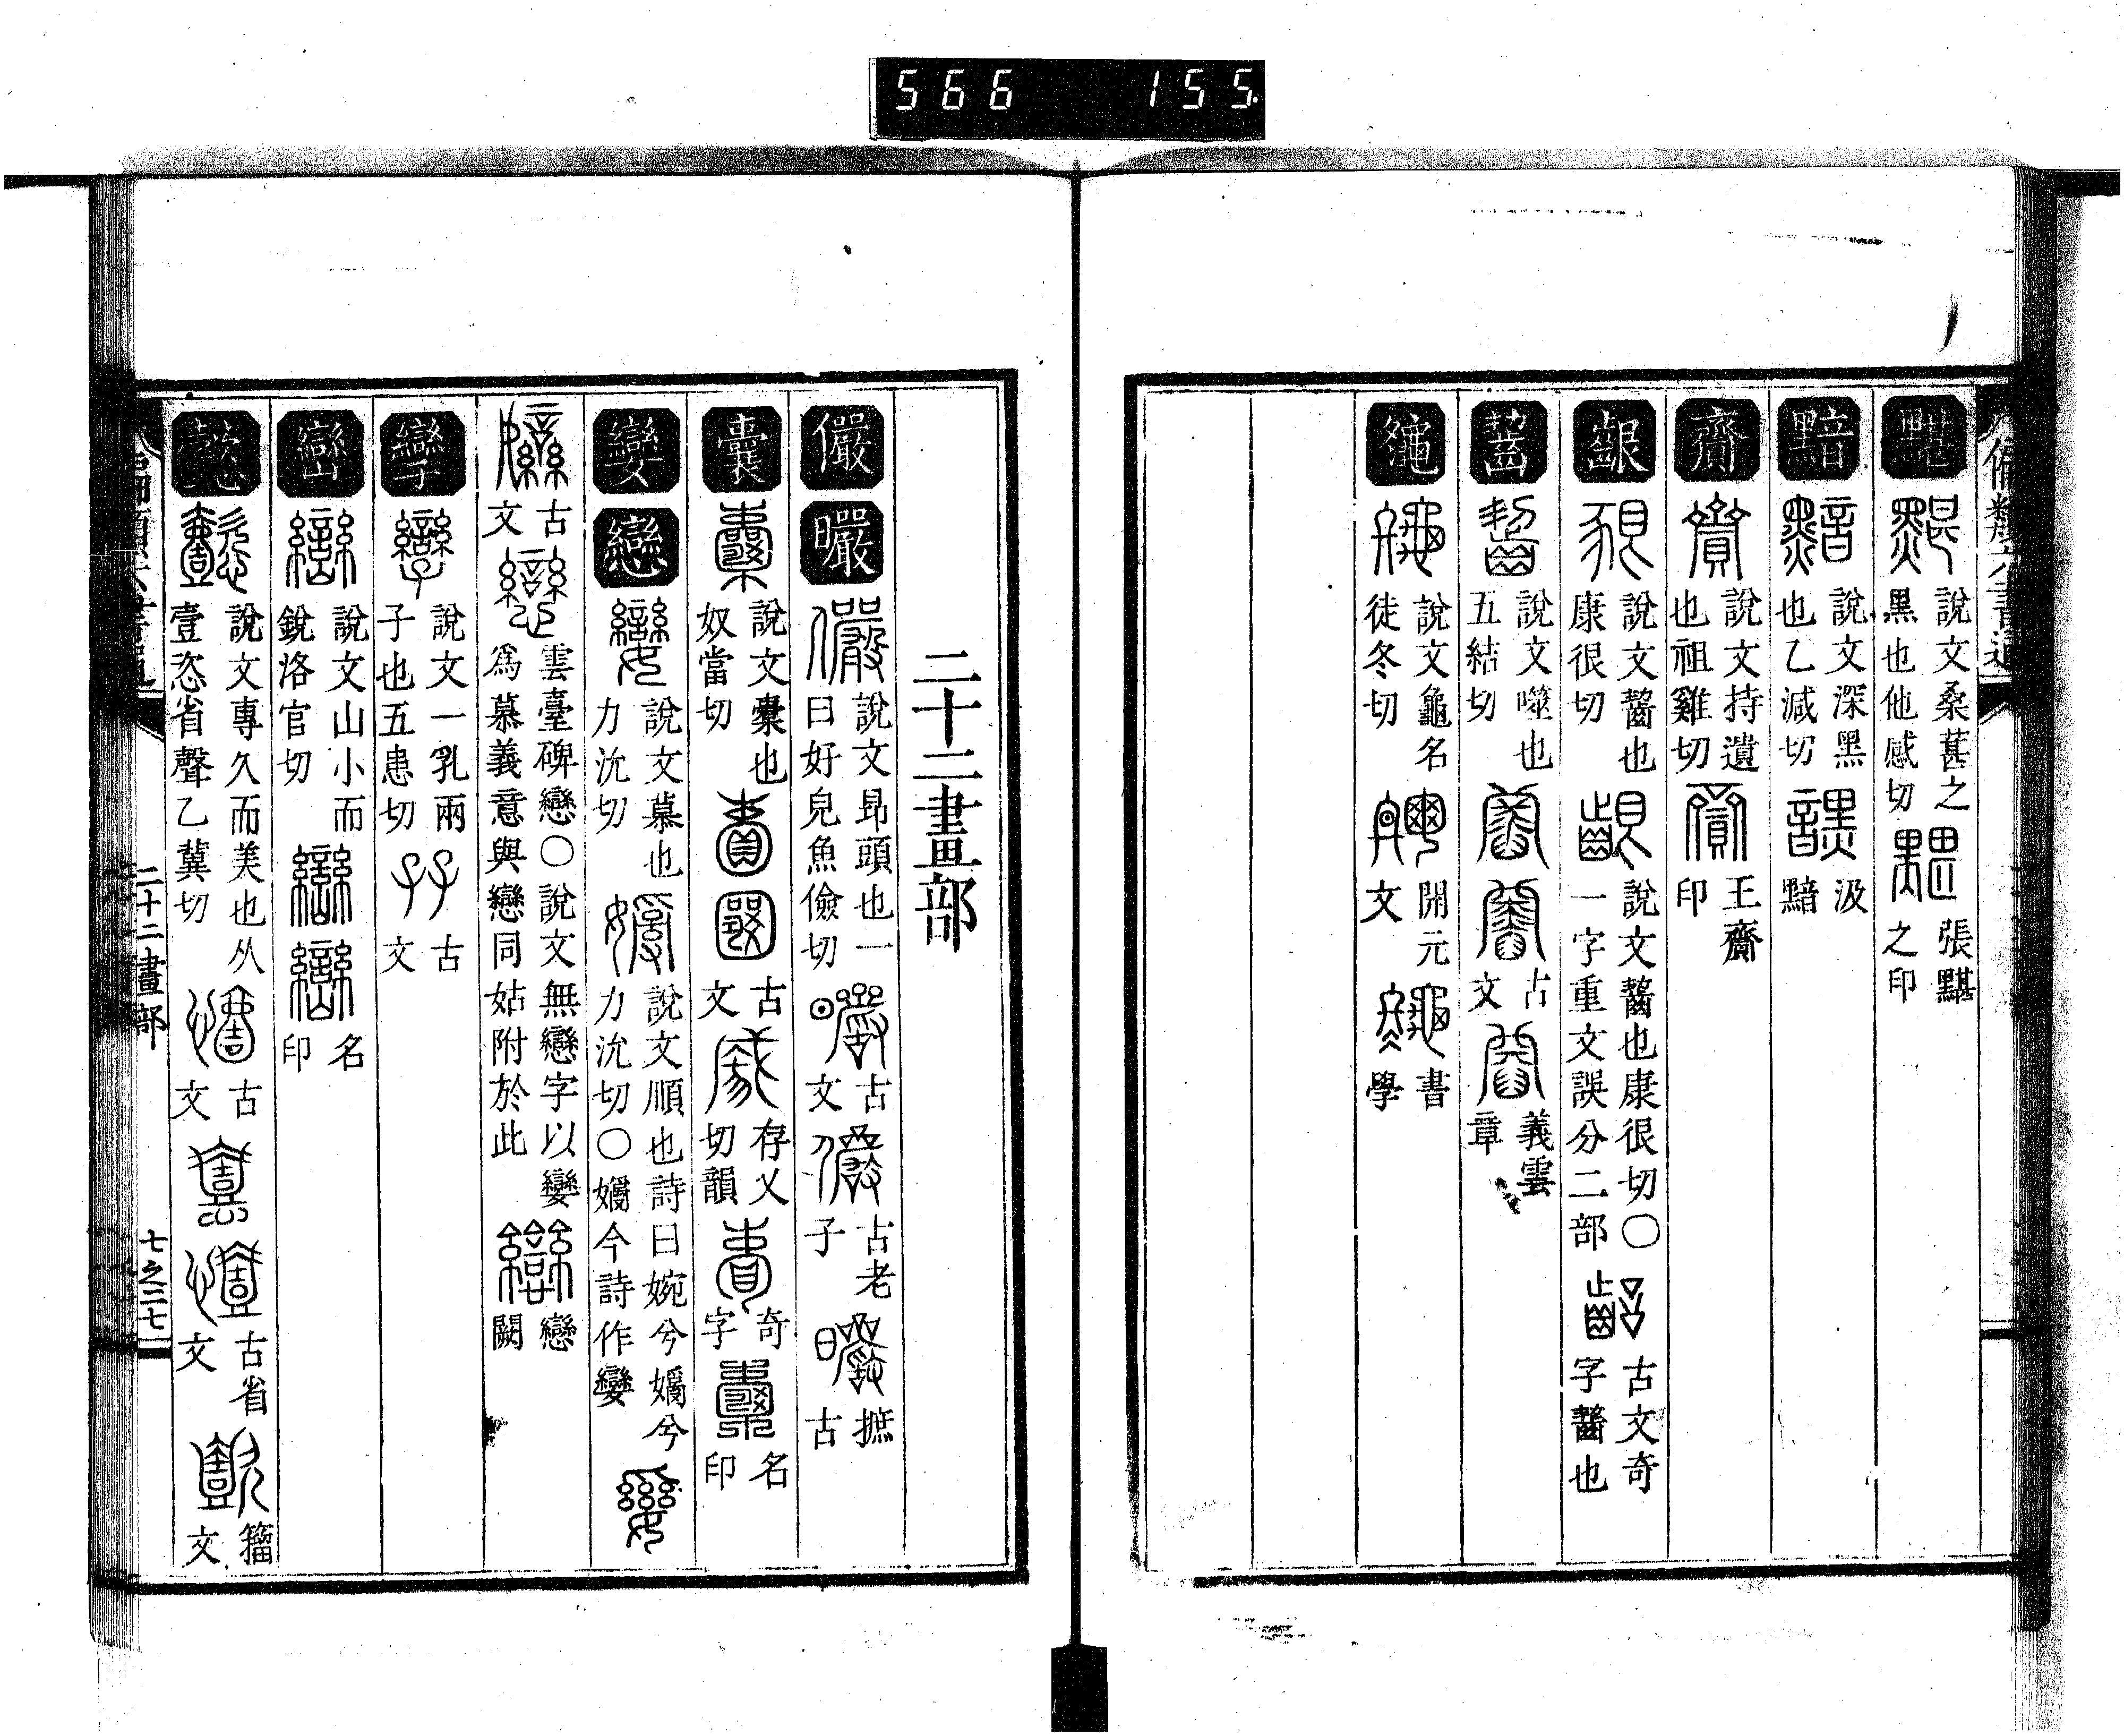 566 155
偏類六書通
黮 說文桑葚之黑也他感切 張黮之印
黯 說文深黑也乙減切 汲黯
齎 說文持遺也祖雞切 王齎印
齦 說文齧也康很切 說文齧也康很切〇一字重文誤分二部 古文奇字齧也
齧 說文噬也五結切 古文 義雲章
䶱 說文龜名徒冬切 開元文 書學
二十二畫部
儼 曮 說文昂頭也一曰好皃魚儉切 古文 古老子 摭古
囊 說文橐也奴當切 古文 存乂切韻 奇字 名印
孌 戀 說文慕也力沇切 說文順也詩曰婉兮嫡兮力沇切〇嫡今詩作孌
古文 雲臺碑戀〇說文無戀字以孌爲慕義意與戀同姑附於此 戀闕
孿 說文一乳兩子也五患切 古文
巒 說文山小而銳洛官切 名印
懿 說文專久而美也从壹恣省聲乙冀切 古文 古省文 籀文
二十二畫部 七之三七